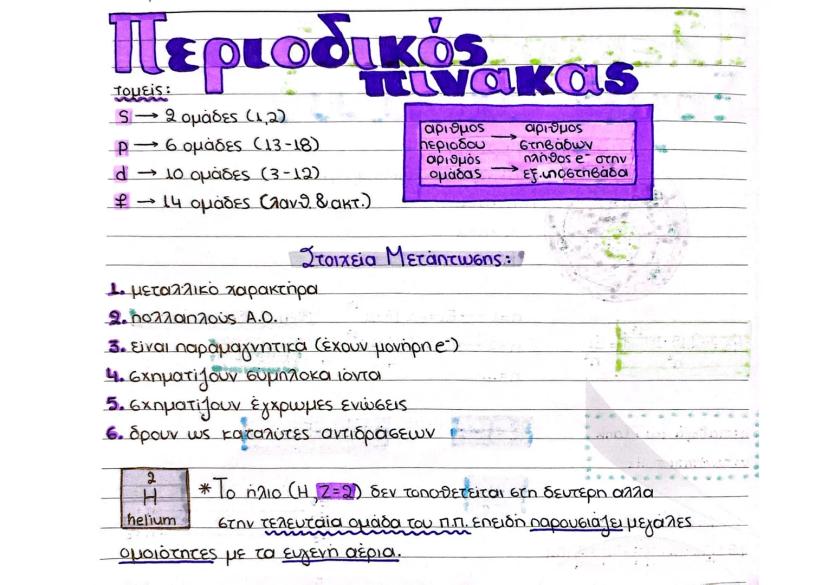 Περιοδικός
πίνακας
τομείς:
s → 2 ομάδες (1,2)
p → 6 ομάδες (13-18)
d → 10 ομάδες (3-12)
f → 14 ομάδες (λανθ. & ακτ.)
αριθμος περιοδου → αριθμος στηβάδων
αριθμός ομάδας → πλήθος e⁻ στην εξ. υποστηβάδα
Στοιχεία Μετάπτωσης:
1. μεταλλικό χαρακτήρα
2. πολλαπλούς Α.Ο.
3. είναι παραμαγνητικά (έχουν μονήρη e⁻)
4. σχηματίζουν σύμπλοκα ιόντα
5. σχηματίζουν έγχρωμες ενώσεις
6. δρουν ως καταλύτες αντιδράσεων
2
H
helium
*Το ήλιο (H, Z=2) δεν τοποθετείται στη δευτερη αλλα
στην τελευταία ομάδα του π.π. επειδή παρουσιάζει μεγάλες
ομοιότητες με τα ευγενη αέρια.